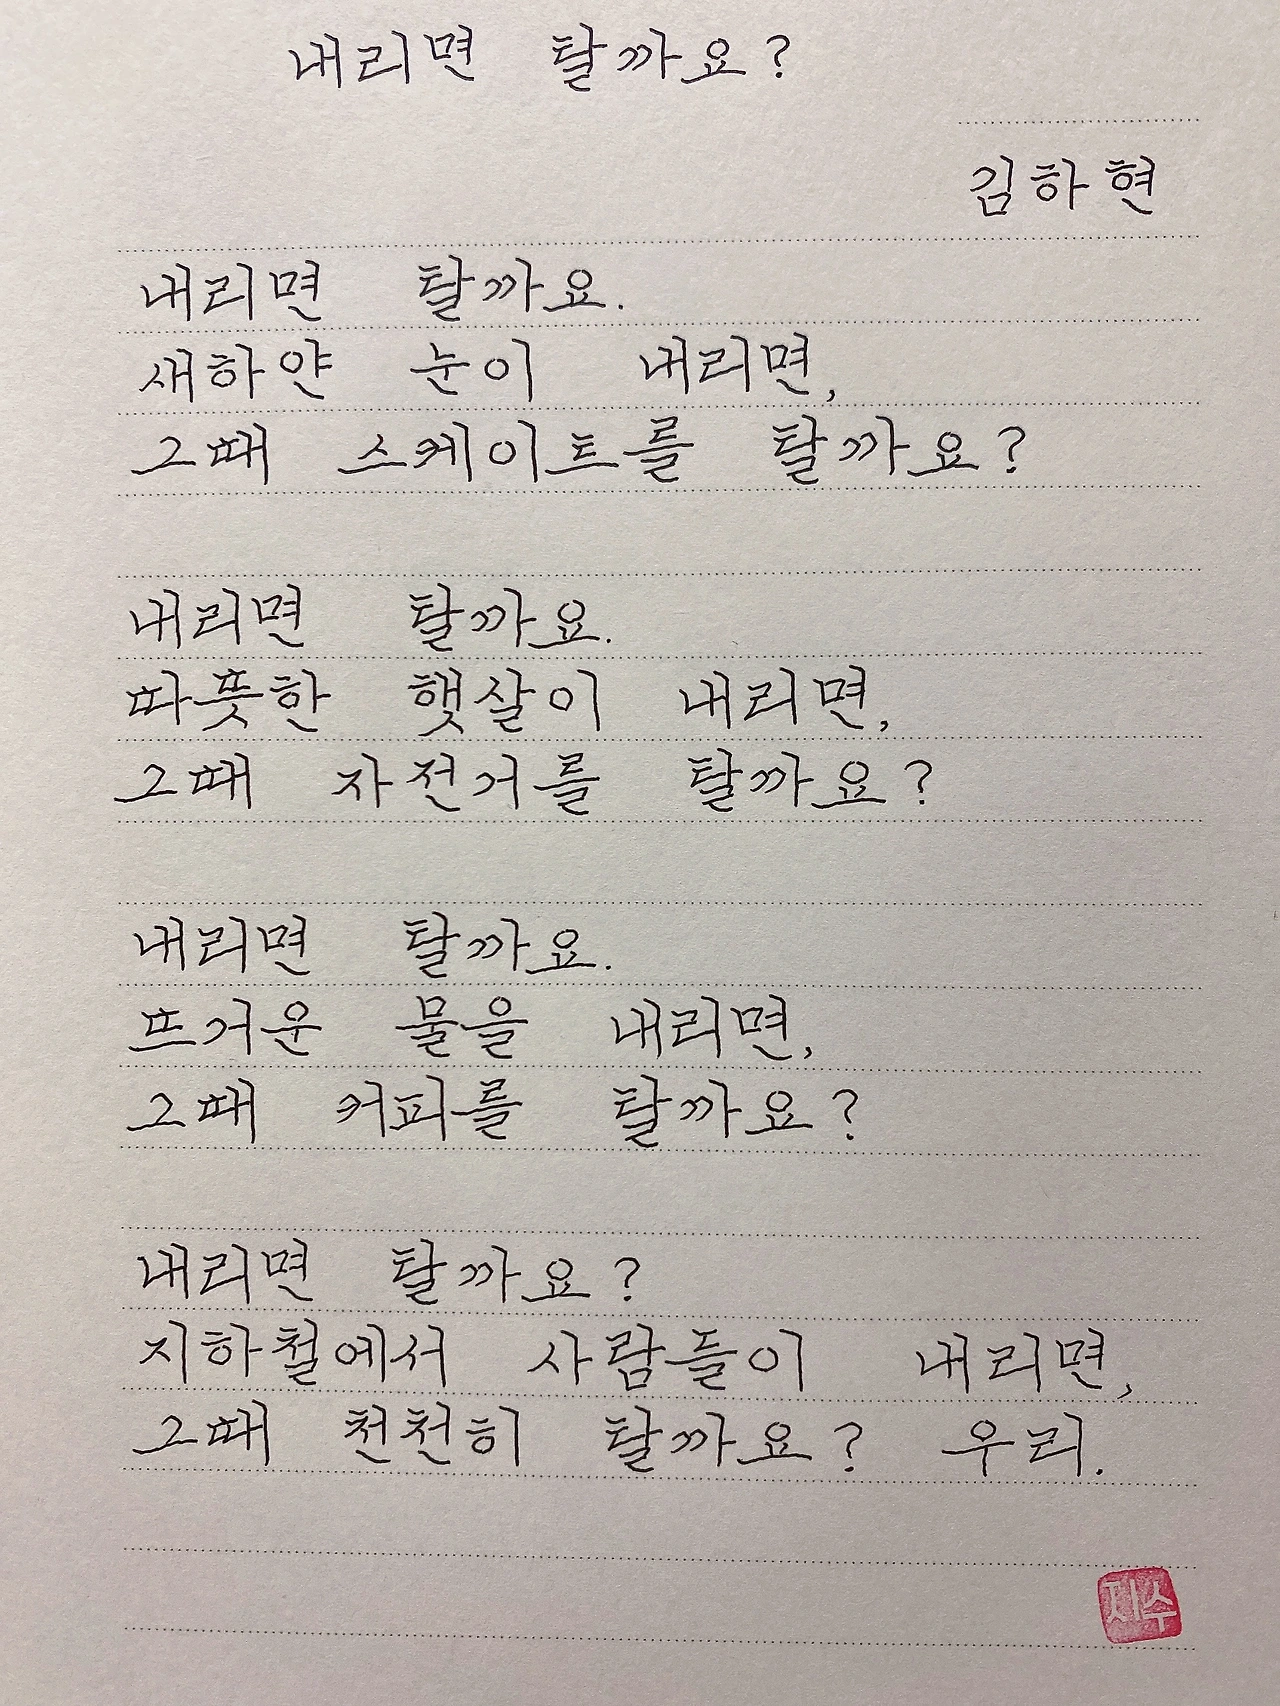 내리면 탈까요?
김하현
내리면 탈까요.
새하얀 눈이 내리면,
그때 스케이트를 탈까요?
내리면 탈까요.
따뜻한 햇살이 내리면,
그때 자전거를 탈까요?
내리면 탈까요.
뜨거운 물을 내리면,
그때 커피를 탈까요?
내리면 탈까요?
지하철에서 사람들이 내리면,
그때 천천히 탈까요? 우리.
지수